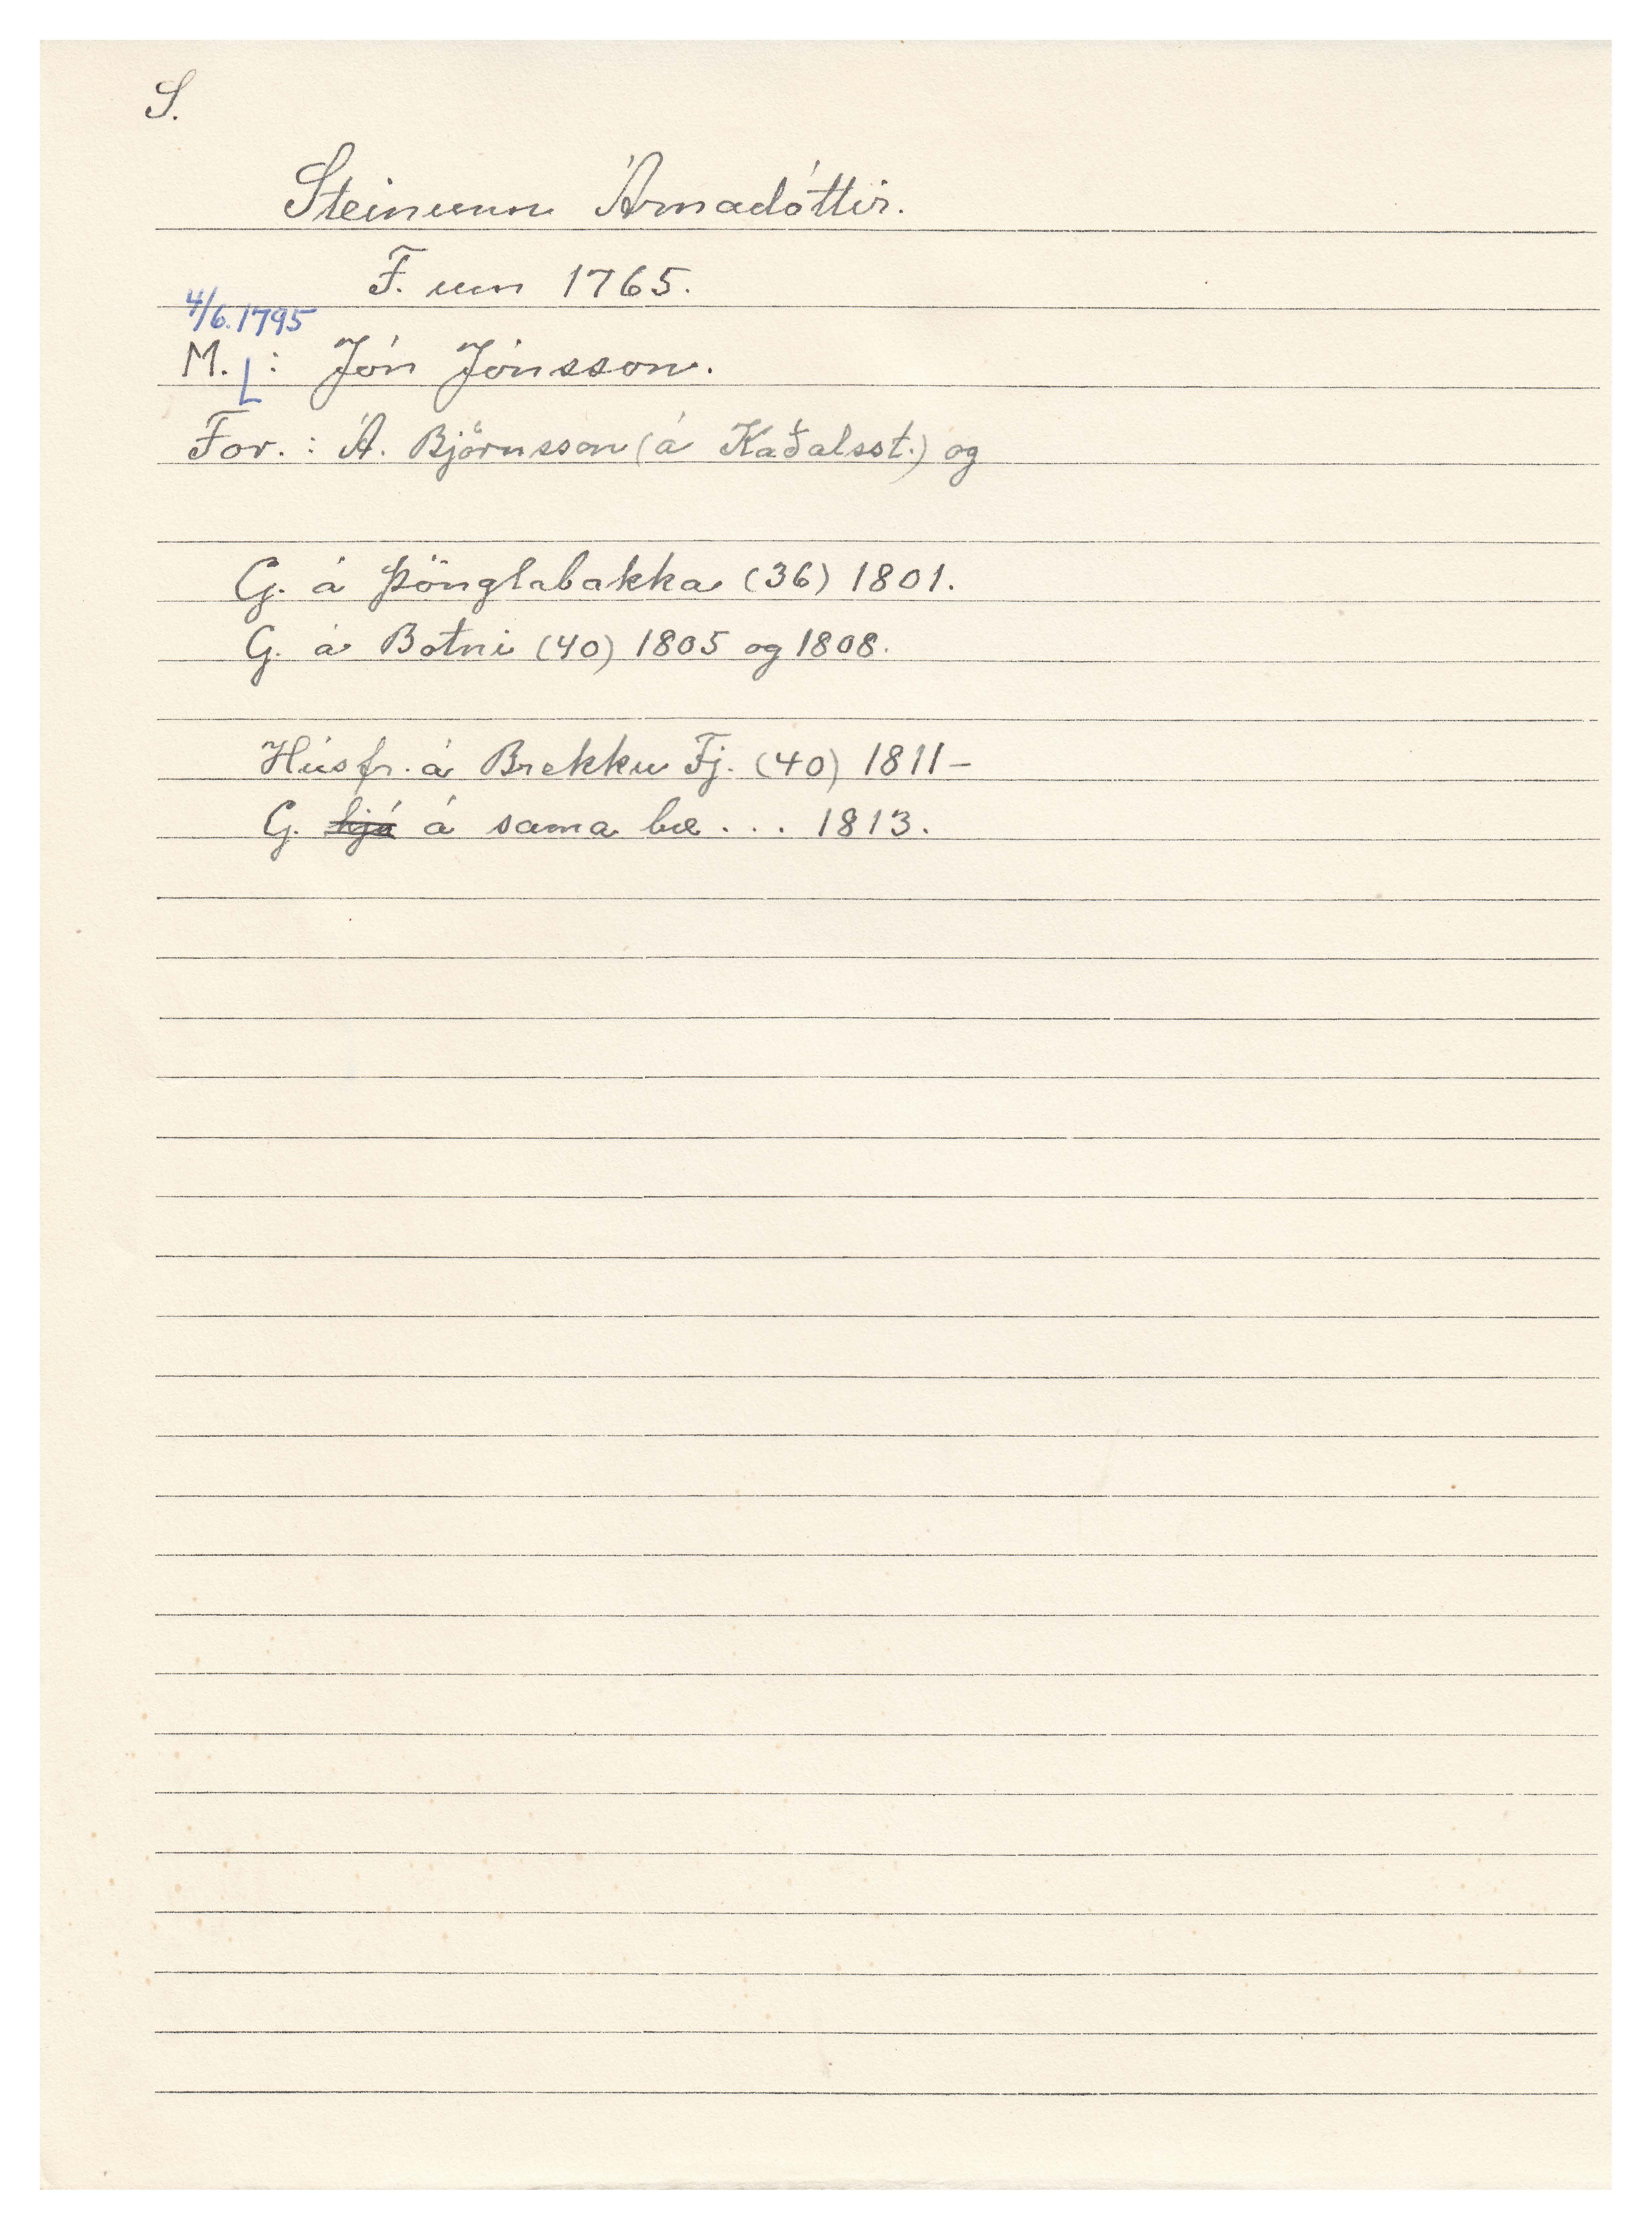 S.
Steinunn Árnadóttir.
F. um 1765.
4/6.1795
M. L: Jón Jónsson.
For.: Á. Björnsson (á Kaðalsst.) og
G. á Þönglabakka (36) 1801.
G. á Botni (40) 1805 og 1808.
Húsfr. á Brekku Fj. (40) 1811-
G. hjá á sama bæ... 1813.